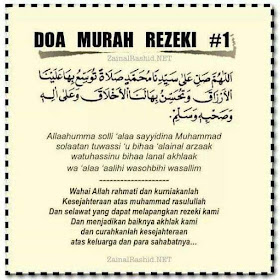 ZainalRashid.NET
DOA MURAH REZEKI #1
اَللّٰهُمَّ صَلِّ عَلَى سَيِّدِنَا مُحَمَّدٍ صَلَاةً تُوَسِّعُ بِهَا عَلَيْنَا
الْأَرْزَاقَ وَتُحَسِّنُ بِهَا لَنَا الْأَخْلَاقَ وَعَلَى آلِهِ
وَصَحْبِهِ وَسَلِّمْ
Allaahumma solli 'alaa sayyidina Muhammad
solaatan tuwassi 'u bihaa 'alainal arzaak
watuhassinu bihaa lanal akhlaak
wa 'alaa 'aalihi wasohbihi wasallim
--------------------
Wahai Allah rahmati dan kurniakanlah
Kesejahteraan atas muhammad rasulullah
Dan selawat yang dapat melapangkan rezeki kami
Dan menjadikan baiknya akhlak kami
dan curahkanlah kesejahteraan
atas keluarga dan para sahabatnya...
ZainalRashid.NET